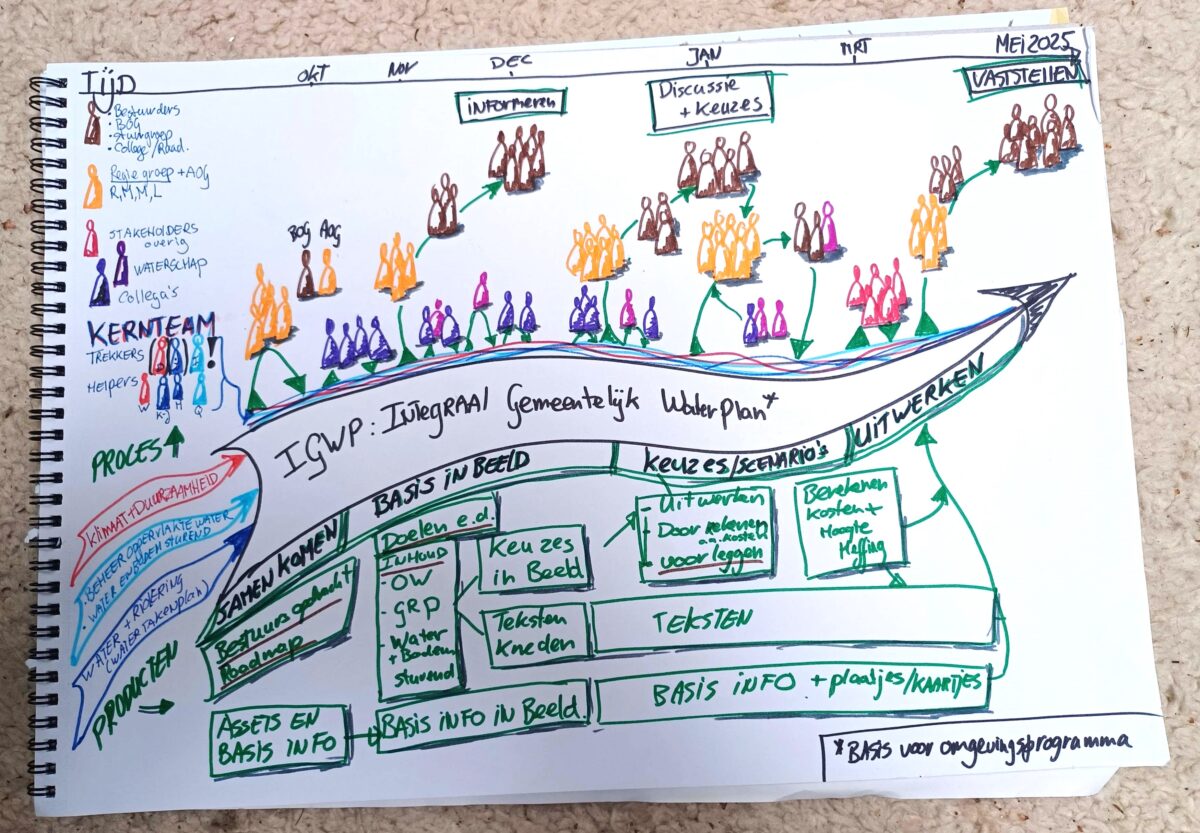 TijD
OKT
NOV
DEC
JAN
MRT
MEI 2025
informeren
Discussie
+ Keuzes
VASTSTELLEN
• Bestuurders
• BOG
• Stuurgroep
• College/Raad.
Regiegroep + AOG
R, M, M, L
STAKEHOLDERS
overig
WATERSCHAP
Collega's
BOG AOG
KERNTEAM
TREKKERS
!
Helpers
W K+J H Q
PROCES
IGWP: INTEGRAAL Gemeentelijk WaterPlan*
SAMENKOMEN
BASIS iN BEELD
Keuzes/SCENARIO's
UITWERKEN
Klimaat + DUURZAAMHEID
• BEHEER OPPERVLAKTE WATER
• WATER EN BODEM STUREND
WATER + RIOLERING
(WATERTAKENPLAN)
PRODUCTEN
Bestuursopdracht
Roadmap
Doelen e.d.
INHOUD
OW
- GRP
- Water
+ Bodem
sturend
KEUZES
in Beeld
Teksten
Kneden
- Uitwerken
- Doorrekenen
o.a. kosten
- voorleggen
Berekenen
Kosten +
Hoogte
Heffing
TEKSTEN
ASSETS EN
BASIS INFO
BASIS iNFO iN Beeld
BASIS iNFO + plaatjes/KAARTJES
*BASIS voor omgevingsprogramma